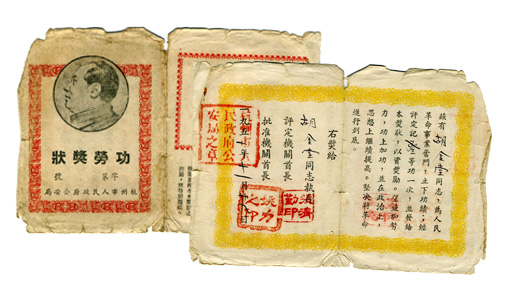 功勞獎狀
字第 號
杭州市人民政府公安局
茲有 胡金堂 同志，為人民
革命事業奮鬥，立下功績；經
評定記 等功一次，並發給
本獎狀，以資獎勵。 努
力，功上加功，並在政治上、
思想上繼續提高。堅決將革命
進行到底。
右獎給
胡金堂同志執
評定機關首長
批准機關首長
一九五一年十 月 日
市
民政府公
安局之章